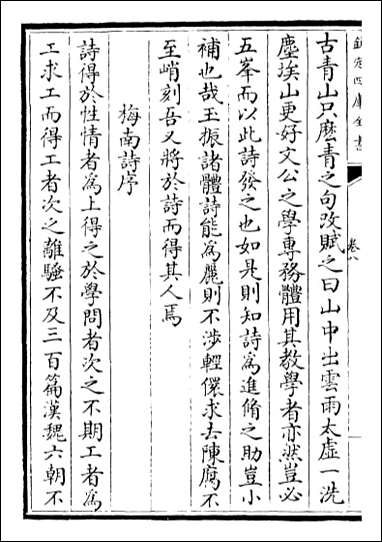 欽定四庫全書
卷八
古青山只麽青之句改賦之曰山中出雲雨太虚一洗
塵埃山更好文公之學專務體用其教學者亦然豈必
五峯而以此詩發之也如是則知詩為進脩之助豈小
補也哉玉振諸體詩能為麗則不涉輕儇求去陳腐不
至峭刻吾又將於詩而得其人焉
梅南詩序
詩得於性情者為上得之於學問者次之不期工者為
工求工而得工者次之離騷不及三百篇漢魏六朝不